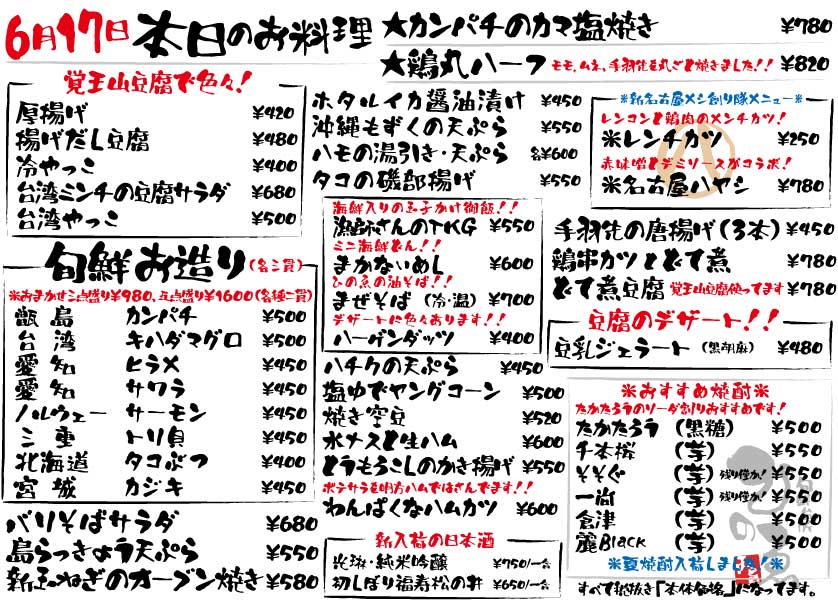 6月17日 本日のお料理
★カンパチのカマ塩焼き ¥780
★鶏丸ハーフ モモ、ムネ、手羽先を丸ごと焼きました!! ¥820
覚王山豆腐で色々!
厚揚げ ¥420
揚げだし豆腐 ¥480
冷やっこ ¥400
台湾ミンチの豆腐サラダ ¥680
台湾やっこ ¥500
旬鮮お造り(各二貫)
※おまかせ三点盛り¥980、五点盛り¥1600(各種二貫)
甑島 カンパチ ¥500
台湾 キハダマグロ ¥500
愛知 ヒラメ ¥450
愛知 サワラ ¥450
ノルウェー サーモン ¥450
三重 トリ貝 ¥450
北海道 タコぶつ ¥400
宮城 カジキ ¥450
バリそばサラダ ¥680
島らっきょう天ぷら ¥550
新玉ねぎのオーブン焼き ¥580
ホタルイカ醤油漬け ¥450
沖縄もずくの天ぷら ¥550
ハモの湯引き・天ぷら 各¥600
タコの磯部揚げ ¥550
海鮮入りの玉子かけ御飯!!
漁師さんのTKG ¥550
ミニ海鮮どん!!
まかないめし ¥600
ひのゑの油そば!!
まぜそば (冷・温) ¥700
デザートに色々あります!!
ハーゲンダッツ ¥400
ハチクの天ぷら ¥450
塩ゆでヤングコーン ¥500
焼き空豆 ¥520
水ナスと生ハム ¥600
とうもろこしのかき揚げ ¥550
ポテサラを明方ハムではさんでます!!
わんぱくなハムカツ ¥600
新入荷の日本酒
光琳・純米吟醸 ¥750/一合
初しぼり福寿松の井 ¥650/一合
※新名古屋メシ創り隊メニュー※
レンコンと鶏肉のメンチカツ!
※レンチカツ ¥250
赤味噌とデミソースがコラボ!
※名古屋ハヤシ ¥780
手羽先の唐揚げ(3本) ¥450
鶏串カツとどて煮 ¥780
どて煮豆腐 覚王山豆腐使ってます ¥780
豆腐のデザート!!
豆乳ジェラート (黒胡麻) ¥480
※おすすめ焼酎※
たかたろうのソーダ割りおすすめです!
たかたろう (黒糖) ¥500
千本桜 (芋) ¥500
そそぐ (芋) 残り僅か! ¥500
一尚 (芋) 残り僅か! ¥500
倉津 (芋) ¥500
麗Black (芋) ¥500
※夏焼酎入荷しました!※
すべて税抜き「本体価格」になってます。